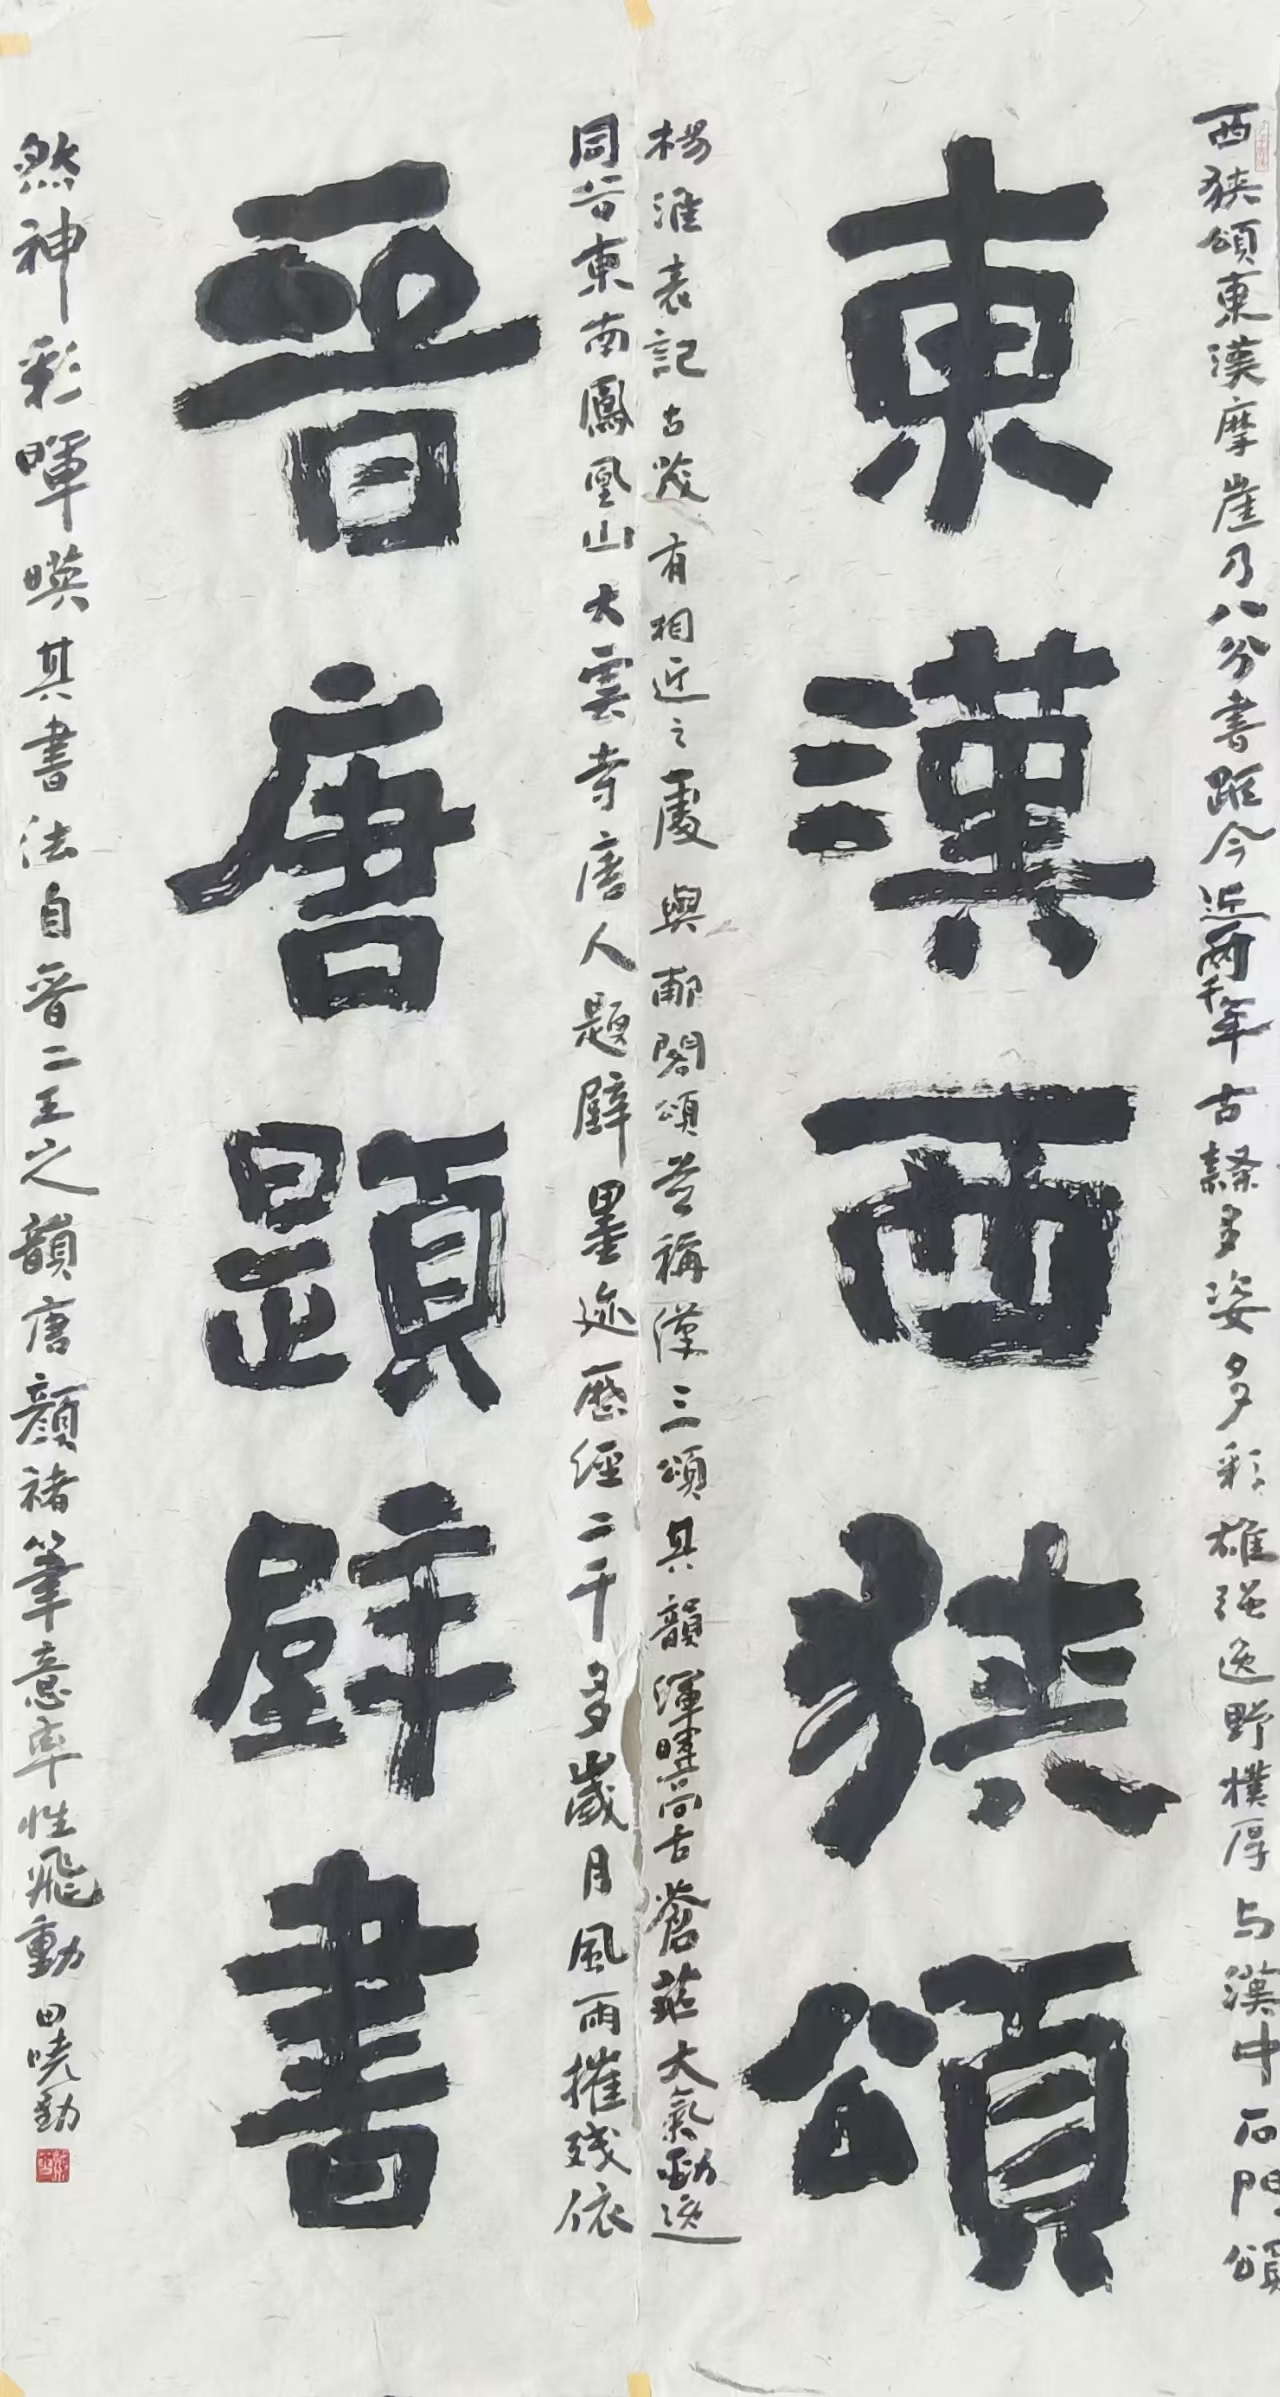 西狹頌東漢摩崖乃八分書距今近兩千年古隸多姿多彩雄强逸野樸厚与漢中石門頌
東漢西狹頌
楊淮表記古跋有相近之處與郙閣頌並稱漢三頌其韻渾曄高古蒼茫大氣勁逸
同谷東南鳳凰山大雲寺唐人題壁墨迹歷經二千多歲月風雨摧殘依
晉唐題壁書
然神彩暉暎其書法自晉二王之韻唐顏褚筆意率性飛動田曉勤